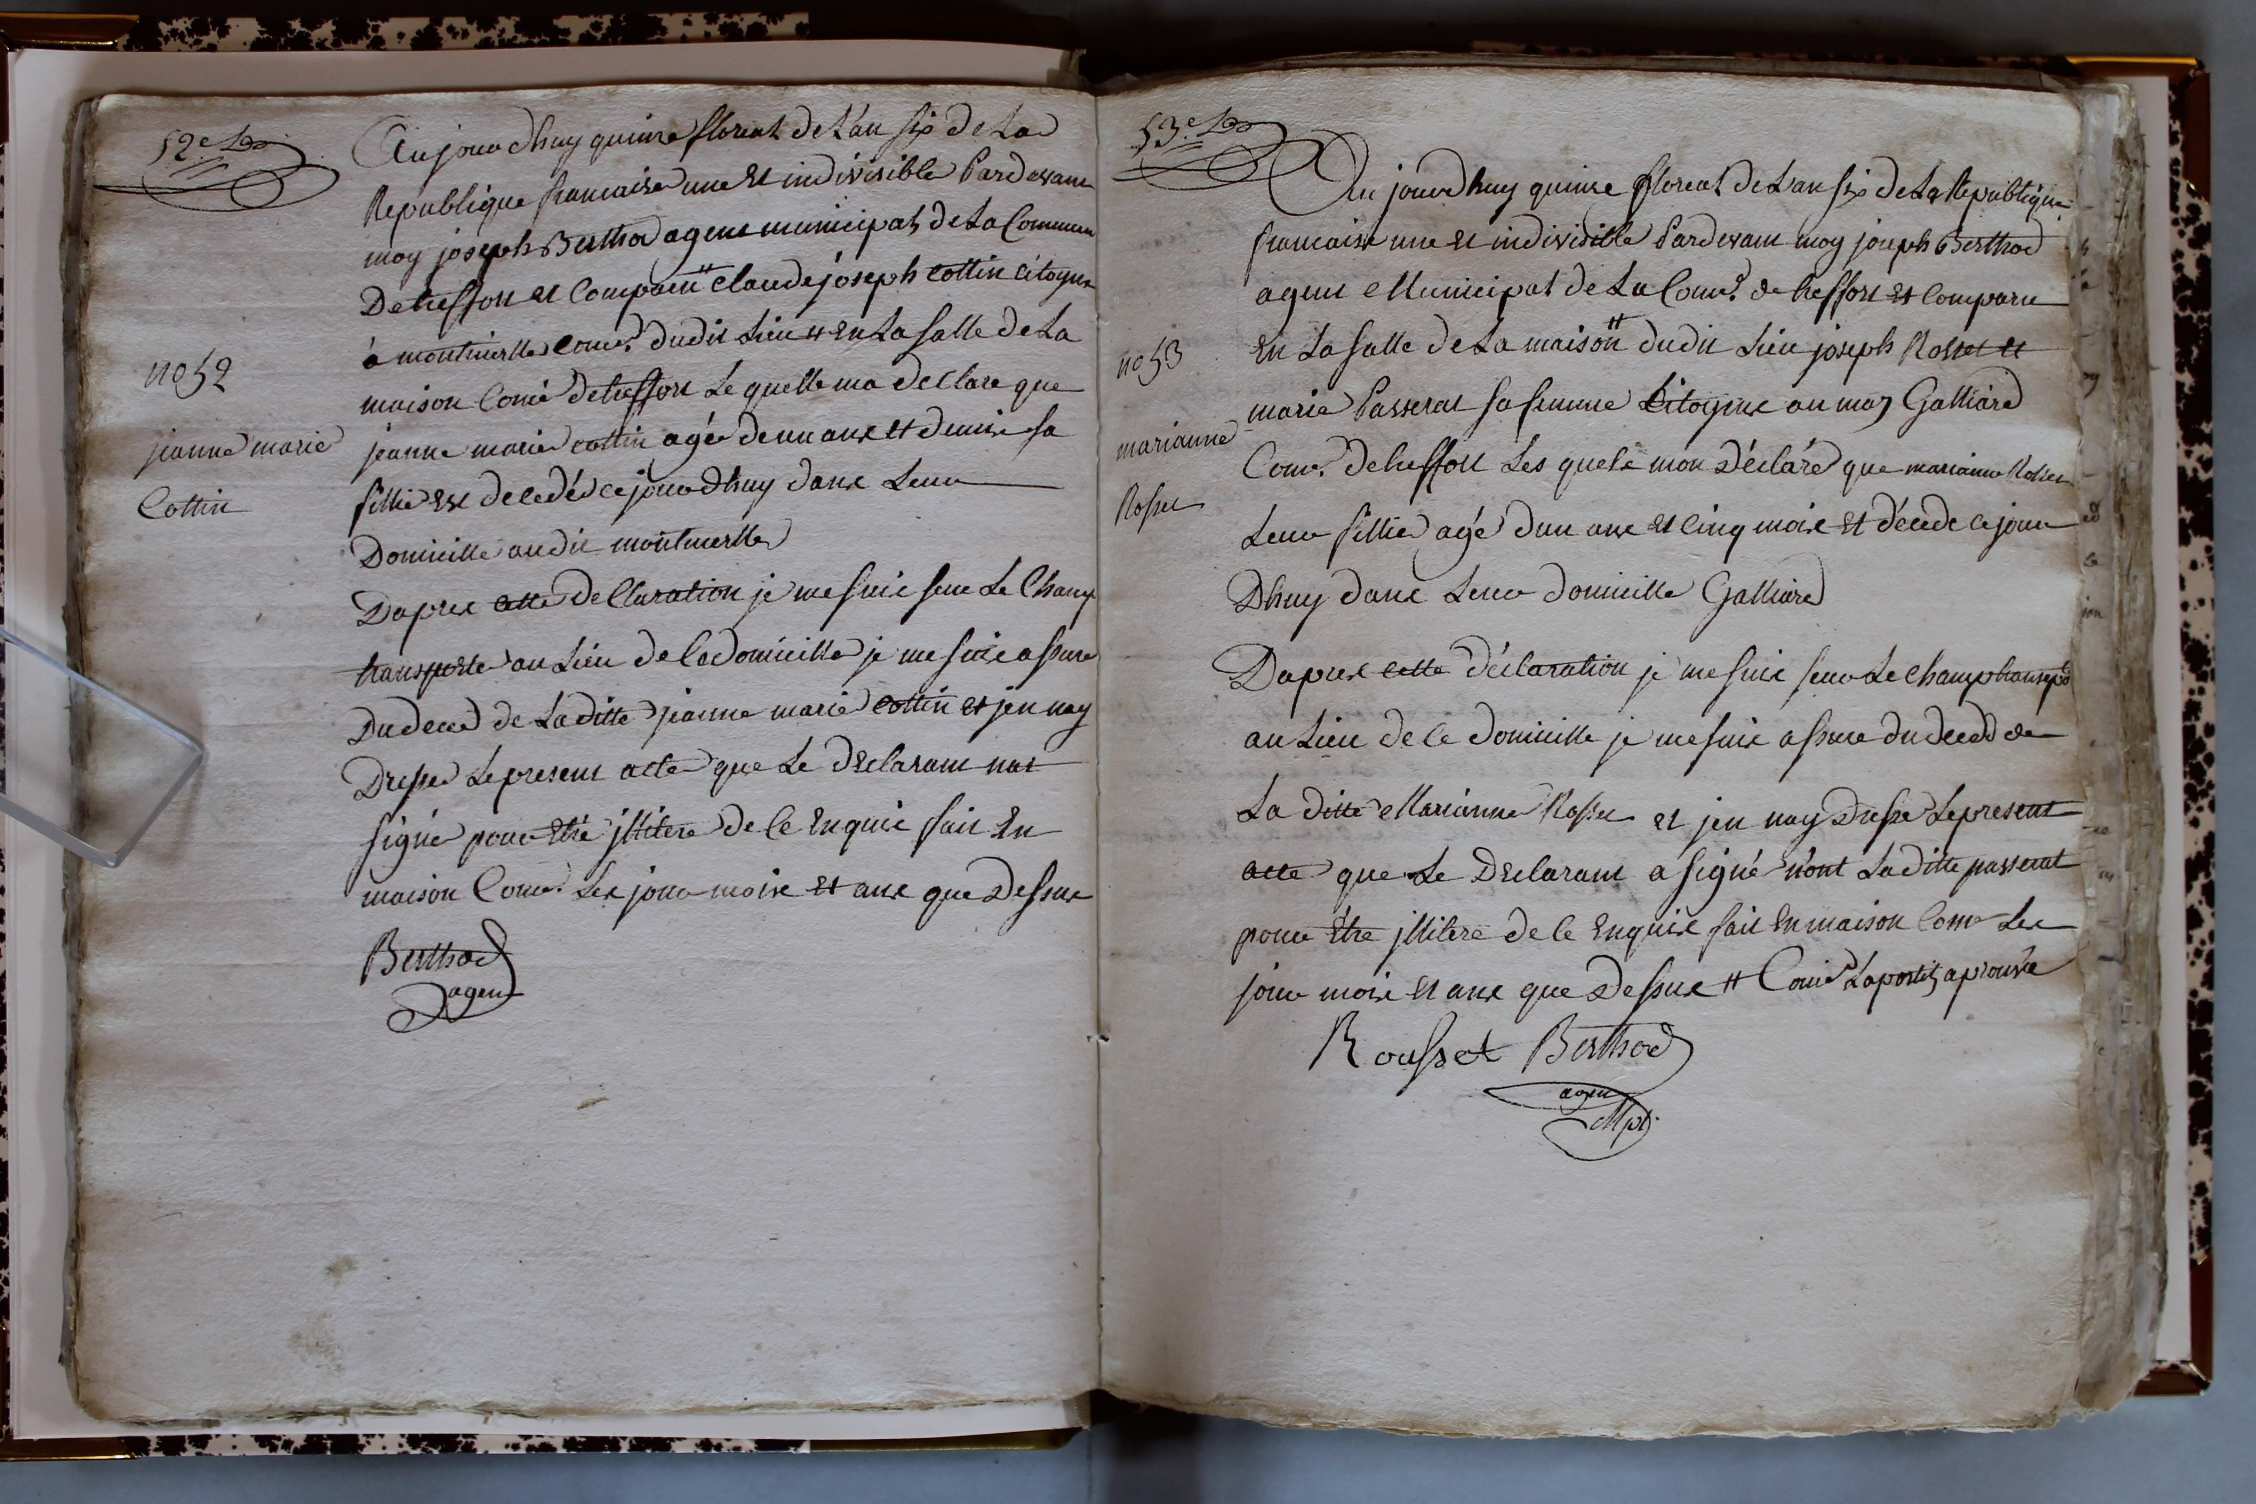 52e
Aujourdhuy quinze floreal de Lan six de La
Republique francaise une et indivisible Pardevant
moy joseph Berthod agent municipal de La Commune
De treffort et Comparu # claude joseph Cottin citoyen
à montmerle Come. dudit Lieu # en La salle de La
no 52
maison Come de treffort Le quelle ma declare que
jeanne marie
jeanne marie Cottin agée de un ans et demie sa
Cottin
fillie est decedé ce jourdhuy dans Leur
Domicille audit montmerlle
Dapres cette declaration je me suis sur Le Champ
transporte au Lieu de ce domicille je me suis assure
Du deced de La ditte jeanne marie Cottin et jen nay
Dresse Le present acte que Le declarant nat
signé pour etre jllitere de ce enquis fait en
maison Come. Les jour mois et ans que Dessus
Berthod
agent
53e
Au jourdhuy quinze floreal de Lan six de La Republique
francaise une et indivisible Pardevant moy joseph Berthod
agent Municipal de La Come. de treffort et Comparu
no 53
en La salle de La maison # dudit Lieu joseph Rosset et
marie Passerat sa femme Citoyens au maz Galliard
marianne
Come. de treffort Les quels mon déclaré que marianne Rosset
Rosset
Leur fillie agé dun ans et cinq mois et décede ce jour
Dhuy dans Leur domicille Galliard
Dapres cette déclaration je me suis sur Le Champ transpté
au Lieu de ce domicille je me suis assure du deced de
La ditte Marianne Rosset et jen nay Dresse Le present
acte que Le Declarant a signé n'ont La ditte passerat
pour être jllitere de ce enquis fait en maison Come Les
jour mois et ans que Dessus # Come Lapostil aprouvée
Rousset Berthod
agent
Mpl.